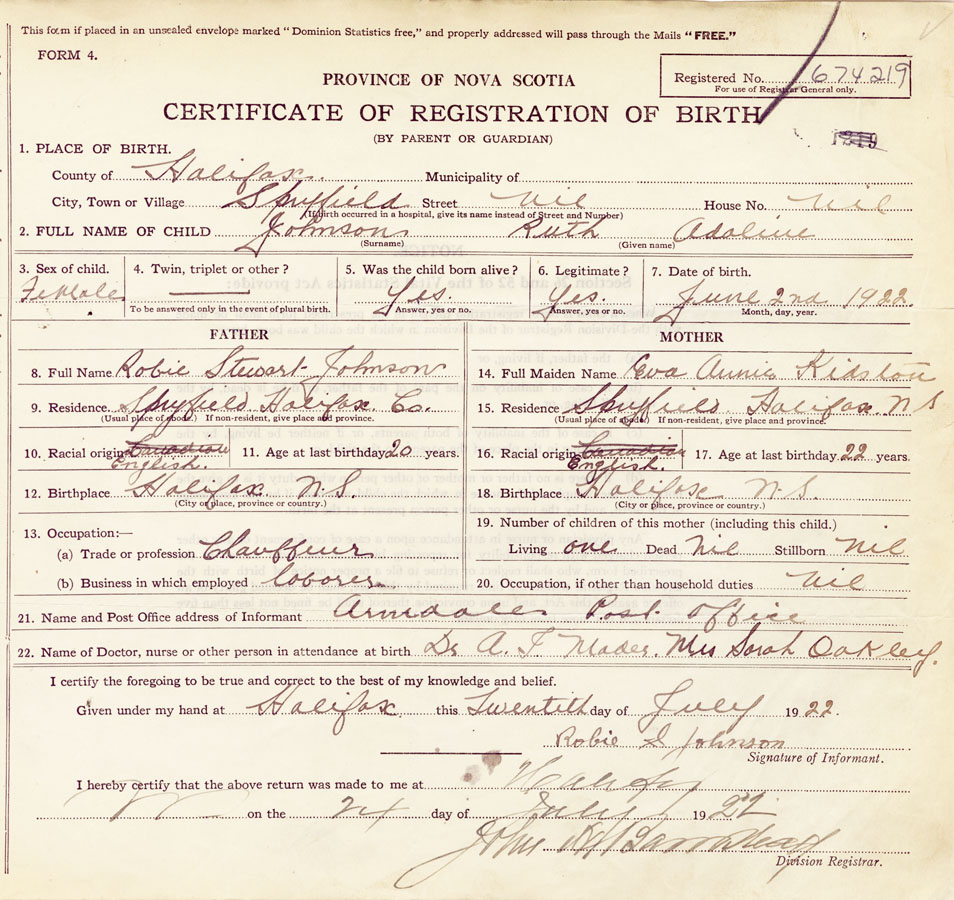 This form if placed in an unsealed envelope marked "Dominion Statistics free," and properly addressed will pass through the Mails "FREE."
FORM 4.
Registered No. 674219
For use of Registrar General only.
PROVINCE OF NOVA SCOTIA
CERTIFICATE OF REGISTRATION OF BIRTH
(BY PARENT OR GUARDIAN)
1. PLACE OF BIRTH.
County of Halifax Municipality of
City, Town or Village Spryfield Street Nil House No. Nil
(If birth occurred in a hospital, give its name instead of Street and Number)
2. FULL NAME OF CHILD Johnson Ruth Adaline
(Surname) (Given name)
3. Sex of child. 4. Twin, triplet or other? 5. Was the child born alive? 6. Legitimate? 7. Date of birth.
Female Yes. Yes. June 2nd 1922.
To be answered only in the event of plural birth. Answer, yes or no. Answer, yes or no. Month, day, year.
FATHER MOTHER
8. Full Name Robie Stewart Johnson 14. Full Maiden Name Eva Annie Kidston
9. Residence. Spryfield Halifax Co. 15. Residence Spryfield Halifax N S
(Usual place of abode.) If non-resident, give place and province. (Usual place of abode) If non-resident, give place and province.
10. Racial origin Canadian 11. Age at last birthday 20 years. 16. Racial origin Canadian 17. Age at last birthday 22 years.
English. English.
12. Birthplace Halifax N.S. 18. Birthplace Halifax N.S.
(City or place, province or country.) (City or place, province or country.)
13. Occupation:— 19. Number of children of this mother (including this child.)
(a) Trade or profession Chauffeur Living one Dead Nil Stillborn Nil
(b) Business in which employed laborer 20. Occupation, if other than household duties Nil
21. Name and Post Office address of Informant Armdale Post Office
22. Name of Doctor, nurse or other person in attendance at birth Dr A. F. Mader. Mrs Sarah Oakley.
I certify the foregoing to be true and correct to the best of my knowledge and belief.
Given under my hand at Halifax this Twentith day of July 1922.
Robie S Johnson
Signature of Informant.
I hereby certify that the above return was made to me at Halifax
on the 24 day of July 1922
John
Division Registrar.